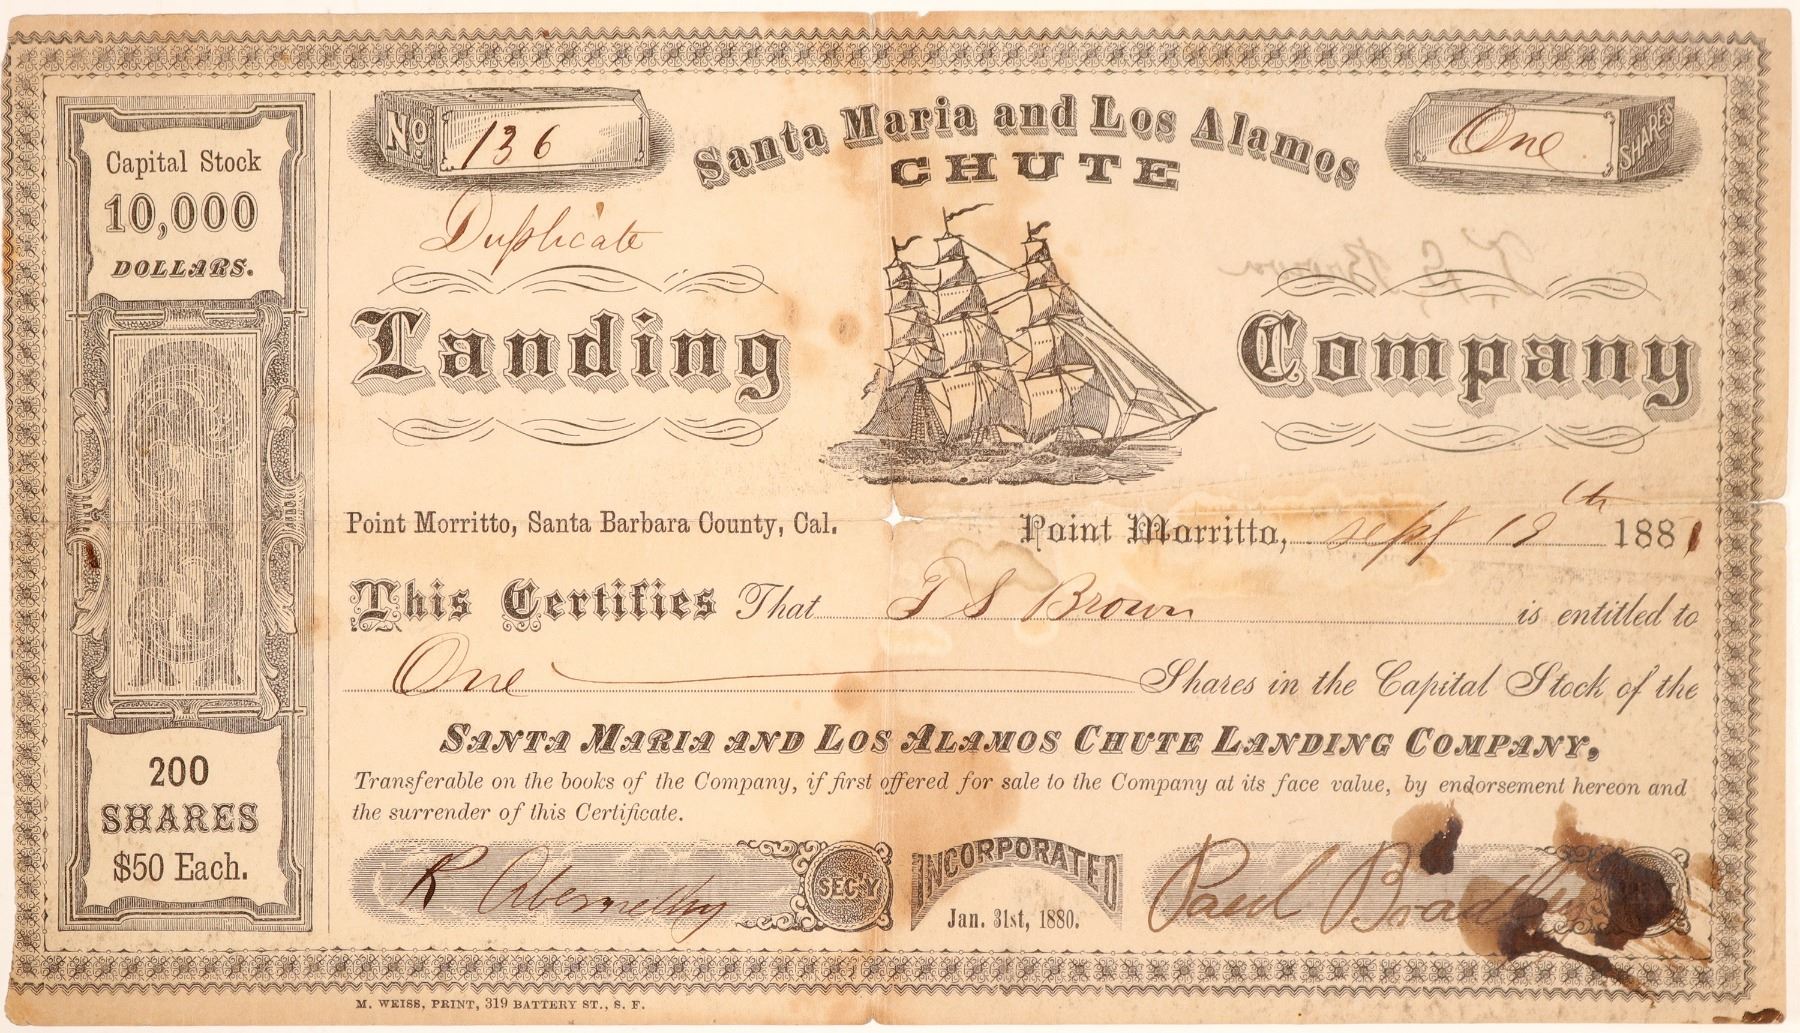 Capital Stock
10,000
DOLLARS.
200
SHARES
$50 Each.
No. 136
Santa Maria and Los Alamos
CHUTE
One SHARES
Duplicate
Landing Company
Point Morritto, Santa Barbara County, Cal.
Point Morritto, Sept 19th 1881
This Certifies That T S Brown is entitled to
One Shares in the Capital Stock of the
SANTA MARIA AND LOS ALAMOS CHUTE LANDING COMPANY,
Transferable on the books of the Company, if first offered for sale to the Company at its face value, by endorsement hereon and
the surrender of this Certificate.
R Abernethy SEC'Y
INCORPORATED
Jan. 31st, 1880.
Paul Bradley
M. WEISS, PRINT, 319 BATTERY ST., S. F.